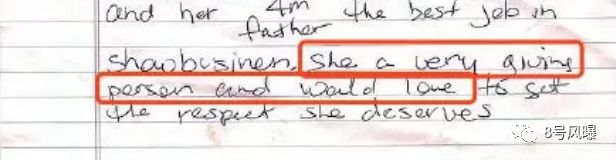 and her 4m the best job in
father
showbusiness. she a very giving
person and would love to get
the respect she deserves
8号风曝